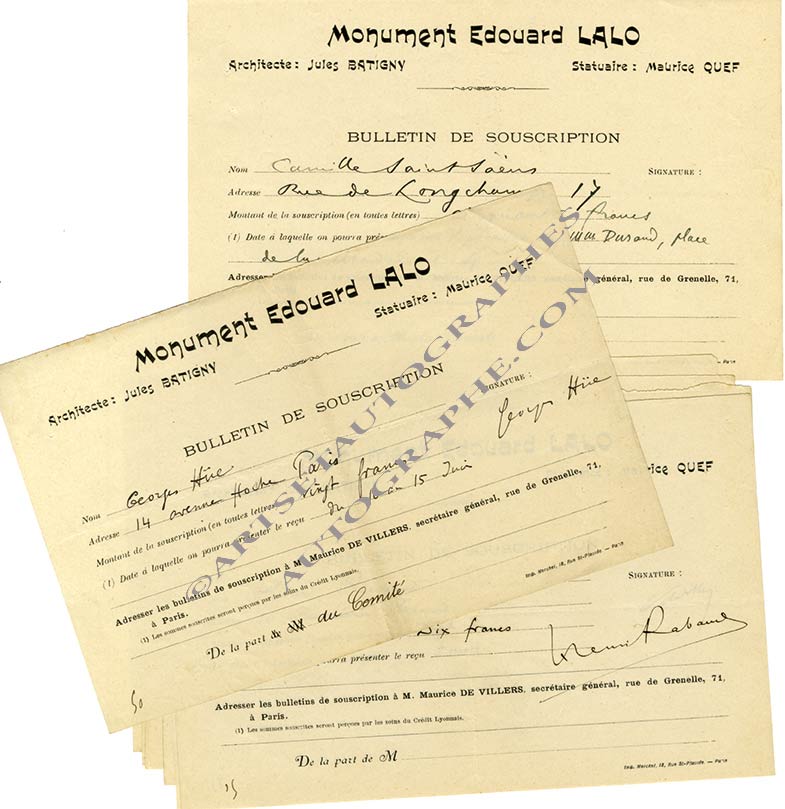 Monument Edouard LALO
Architecte : Jules BATIGNY Statuaire : Maurice QUEF
BULLETIN DE SOUSCRIPTION
Nom Camille Saint-Saëns SIGNATURE :
Adresse Rue de Longchamp 17
Montant de la souscription (en toutes lettres) francs
(1) Date à laquelle on pourra prés Durand, place
de la
Adresser les général, rue de Grenelle, 71,
Paris
Monument Edouard LALO
Architecte : Jules BATIGNY Statuaire : Maurice QUEF
BULLETIN DE SOUSCRIPTION
SIGNATURE :
Georges Hüe
Nom Georges Hüe
Adresse 14 avenue Hoche Paris
Montant de la souscription (en toutes lettres) vingt francs
(1) Date à laquelle on pourra présenter le reçu du 10 au 15 Juin
Adresser les bulletins de souscription à M. Maurice DE VILLERS, secrétaire général, rue de Grenelle, 71,
à Paris.
(1) Les sommes souscrites seront perçues par les soins du Crédit Lyonnais.
Imp. Merckel, 18, Rue St-Placide. — Paris
De la part de M du Comité
50
©ARTSETAUTOGRAPHES
AUTOGRAPHE.COM
rice QUEF
SIGNATURE :
Dix francs
Henri Rabaud
pourra présenter le reçu
Adresser les bulletins de souscription à M. Maurice DE VILLERS, secrétaire général, rue de Grenelle, 71,
à Paris.
(1) Les sommes souscrites seront perçues par les soins du Crédit Lyonnais.
De la part de M
Imp. Merckel, 18, Rue St-Placide. — Paris
15